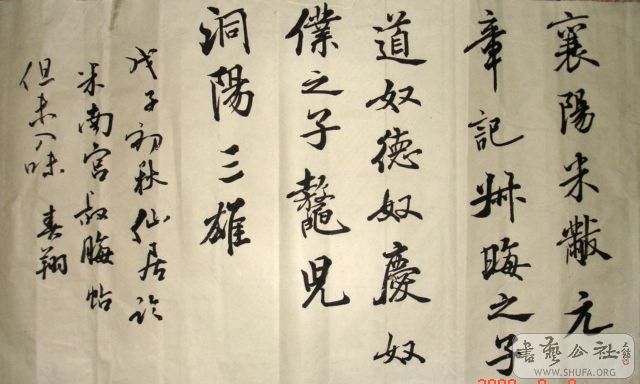 襄陽米黻元
章記叔晦之子
道奴德奴慶奴
僕之子鼇兒
洞陽三雄
戊子初秋仙居临
米南宫叔晦帖
但未入味 春翔
書藝公社
WWW.SHUFA.ORG